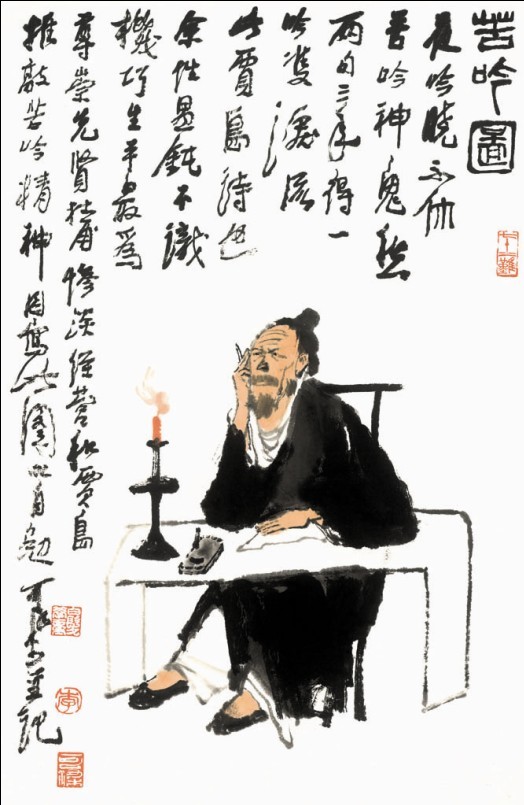 苦吟圖
夜吟曉不休
苦吟神鬼愁
兩句三年得一
吟雙淚流
此賈島詩也
余性愚鈍不識
機巧生平最為
尊崇先賢杜甫慘淡經營和賈島
推敲苦吟精神因寫此圖以自勉可染並記